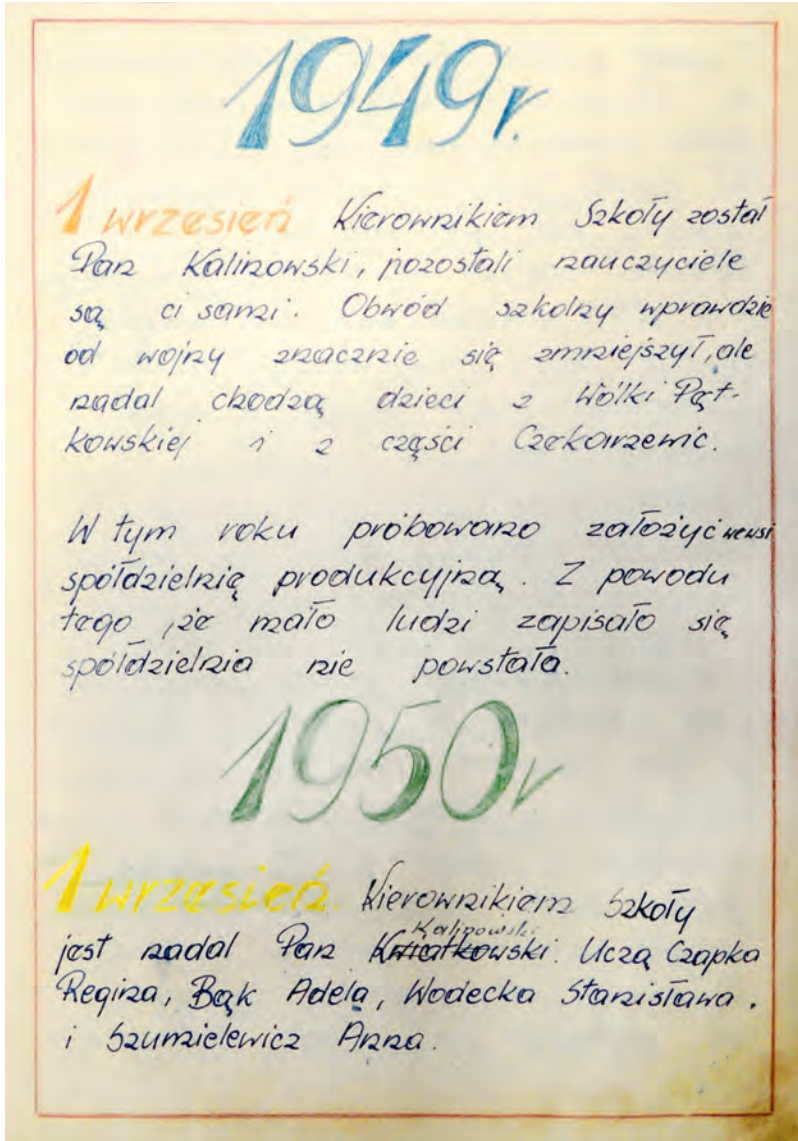 1949 r.
1 wrzesień Kierownikiem Szkoły został
Pan Kalinowski, pozostali nauczyciele
są ci sami. Obwód szkolny wprawdzie
od wojny znacznie się zmniejszył, ale
nadal chodzą dzieci z Wólki Pęt-
kowskiej i z części Czekarzewic.
W tym roku próbowano założyć we wsi
spółdzielnię produkcyjną. Z powodu
tego, że mało ludzi zapisało się
spółdzielnia nie powstała.
1950 r
1 wrzesień. Kierownikiem Szkoły
Kalinowski
jest nadal Pan Kwiatkowski. Uczą Czapka
Regina, Bąk Adela, Wodecka Stanisława.
i Szumielewicz Anna.